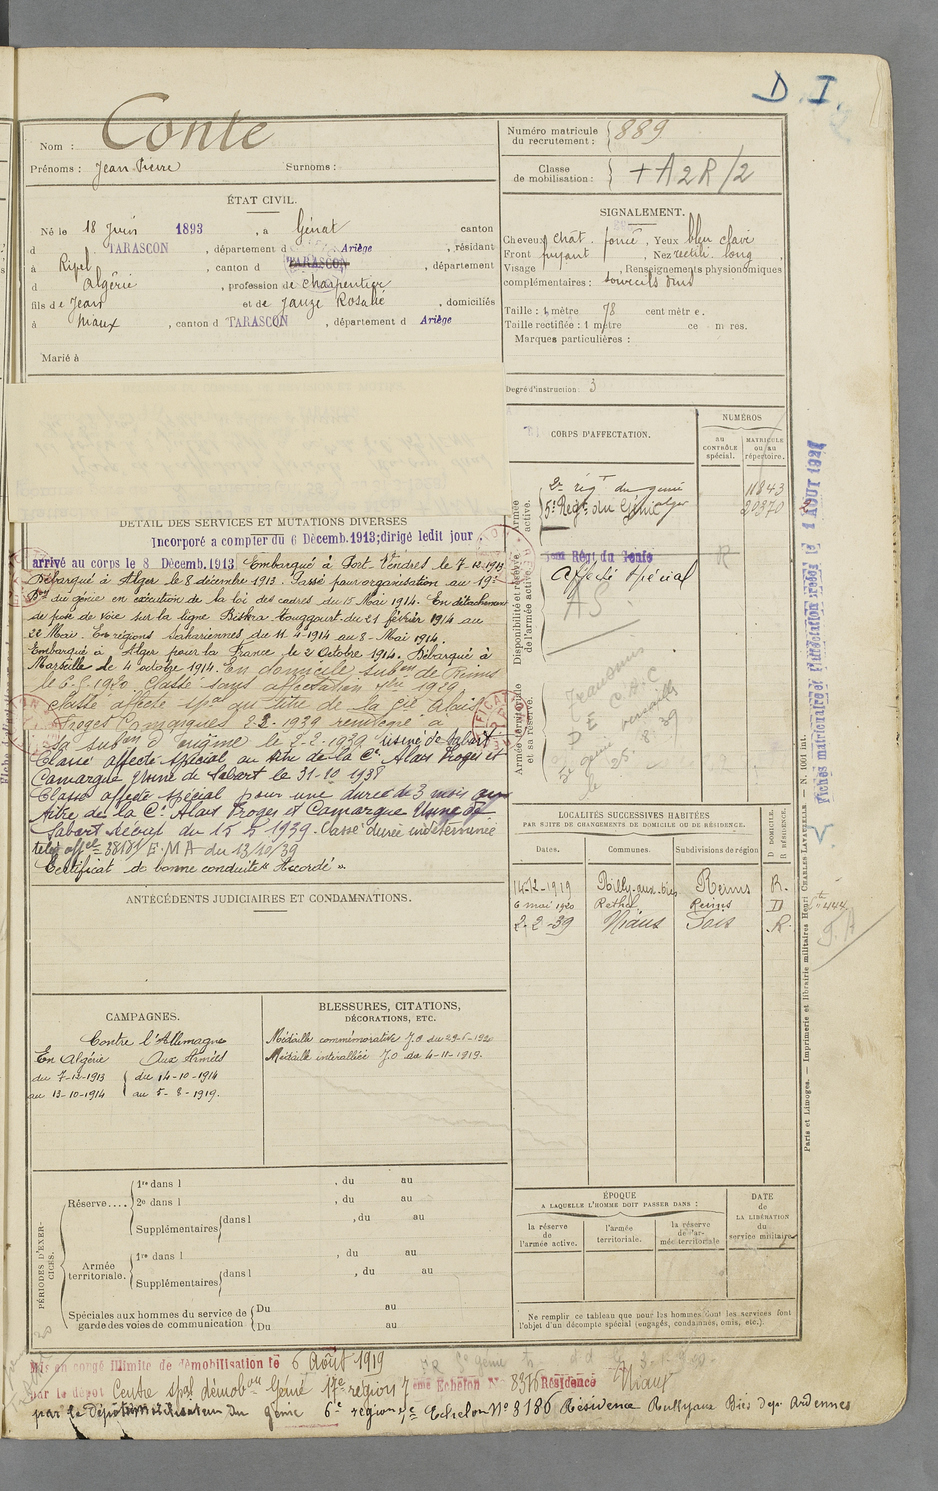 D. I.
Nom : Conte
Prénoms : Jean Pierre Surnoms :
ÉTAT CIVIL.
Né le 18 Juin 1893 , à Génat canton
d TARASCON , département d Ariège , résidant
à , canton d TARASCON , département
d Algérie , profession de charpentier
fils de Jean et de Jauze Rosalie , domiciliés
à Niaux , canton d TARASCON , département d Ariège
Marié à
Numéro matricule du recrutement : 889
Classe de mobilisation : + A 2 R /2
SIGNALEMENT.
Cheveux chât. foncé , Yeux bleu clair
Front fuyant , Nez rectil. long ,
Visage , Renseignements physionomiques
complémentaires : sourcils
Taille : 1 mètre 78 centimètre.
Taille rectifiée : 1 mètre ce m res.
Marques particulières :
Degré d'instruction : 3
CORPS D'AFFECTATION.
NUMÉROS
au contrôle spécial.
matricule ou au répertoire.
Armée active.
2e régt du génie 11843
5e Régt du Génie Alger 20370
Disponibilité et réserve de l'armée active.
Régt du Génie R
Affecté spécial
A S
Armée territoriale et sa réserve.
Transmis
D E C.A.C
5e génie Versailles
le 25 8 39
DÉTAIL DES SERVICES ET MUTATIONS DIVERSES
Incorporé à compter du 6 Décemb. 1913; dirigé ledit jour
arrivé au corps le 8 Décemb. 1913. Embarqué à Port Vendres le 7-12-1913
Débarqué à Alger le 8 décembre 1913. Passé pour organisation au 19e
Bon du génie en exécution de la loi des cadres du 15 Mai 1914. En détachement
de pose de Voie sur la ligne Biskra Touggourt du 21 février 1914 au
22 Mai. En régions sahariennes du 11-4-1914 au 8-Mai 1914.
Embarqué à Alger pour la France le 2 Octobre 1914. Débarqué à
Marseille le 4 octobre 1914. En domicile subon de Reims
le 6-5-1920. Classé sans affectation 1929
Classé affecté spal au titre de la Cie Alais
Froges Camargues 2-2-1939 renvoyé à
sa subon d'origine le 2-2-1939 usine de Sabart
Classé affecté spécial au titre de la Cie Alais Froges et
Camargue Usine de Sabart le 31-10-1938
Classé affecté spécial pour une durée de 3 mois au
titre de la Cie Alais Froges et Camargue Usine de
Sabart du 15 5 1939. Classé durée indéterminée
38181 E.M.A du 13/12/39
Certificat de bonne conduite « Accordé ».
ANTÉCÉDENTS JUDICIAIRES ET CONDAMNATIONS.
LOCALITÉS SUCCESSIVES HABITÉES
PAR SUITE DE CHANGEMENTS DE DOMICILE OU DE RÉSIDENCE.
Dates. Communes. Subdivisions de région D. DOMICILE. R. RÉSIDENCE.
14-12-1919 Rilly-aux-bois Reims R.
6 mai 1920 Rethel Reims D
2-2-39 Niaux Foix .R.
CAMPAGNES.
Contre l'Allemagne
En Algérie Aux Armées
du 7-12-1913 du 14-10-1914
au 13-10-1914 au 5-8-1919.
BLESSURES, CITATIONS,
DÉCORATIONS, ETC.
Médaille commémorative J.O du 29-5-1920
Médaille interalliée J.O du 4-11-1919.
PÉRIODES D'EXERCICES.
Réserve....
1re dans l , du au
2e dans l , du au
Supplémentaires dans l , du au
Armée territoriale.
1re dans l , du au
Supplémentaires dans l , du au
Spéciales aux hommes du service de garde des voies de communication
Du au
Du au
ÉPOQUE
A LAQUELLE L'HOMME DOIT PASSER DANS :
la réserve de l'armée active.
l'armée territoriale.
la réserve de l'armée territoriale
DATE DE LA LIBÉRATION du service militaire
Ne remplir ce tableau que pour les hommes dont les services font
l'objet d'un décompte spécial (engagés, condamnés, omis, etc.).
Mis en congé illimité de démobilisation le 6 Août 1919
par le dépôt Centre spal démobon Génie 17e région 7eme Echelon N° 8376 Résidence Niaux
par le Dépôt démobilisateur du génie 6e région Echelon N° 8186 Résidence Rilly aux Bois dep. Ardennes
Paris et Limoges. — Imprimerie et librairie militaires Henri CHARLES-LAVAUZELLE — N. 1001 int.